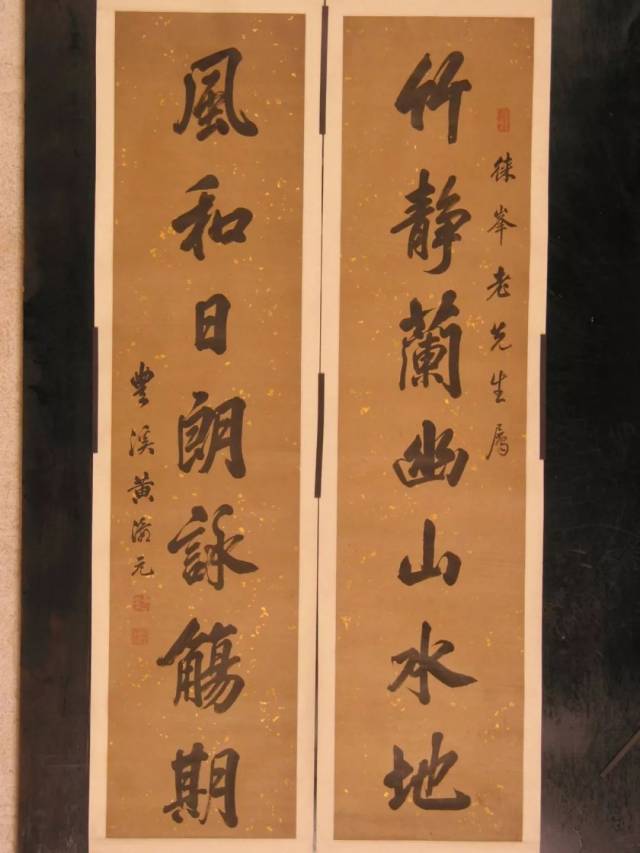 徠峯老先生屬
竹靜蘭幽山水地
風和日朗詠觴期
豐溪黃濬元